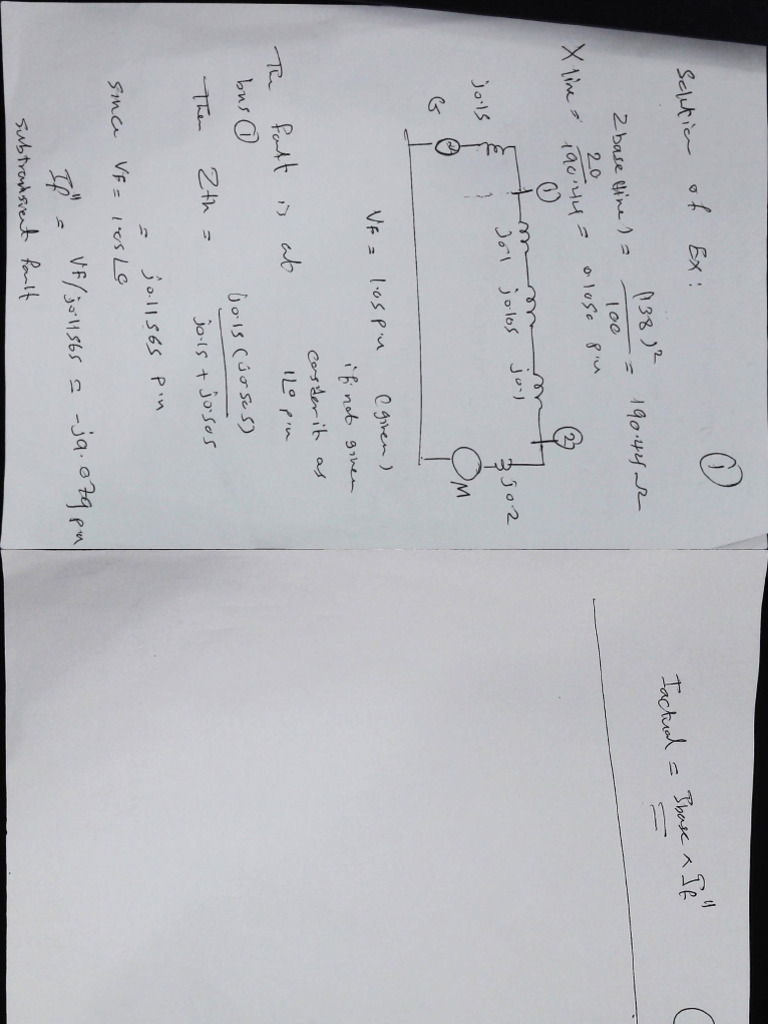 ①
Solution of Ex:
Zbase (line) = (138)² / 100 = 190.44 Ω
X line = 20 / 190.44 = 0.1050 pu
① ②
j0.1 j0.105 j0.1
j0.15 j0.2
G M
VF = 1.05 pu (given)
if not given
consider it as
1∠0 pu
The fault is at
bus ①
Then Zth = j0.15 (j0.505) / j0.15 + j0.505
= j0.11565 pu
since VF = 1.05∠0
If" = VF/j0.11565 = -j9.079 pu
subtransient fault
Iactual = Ibase × If"